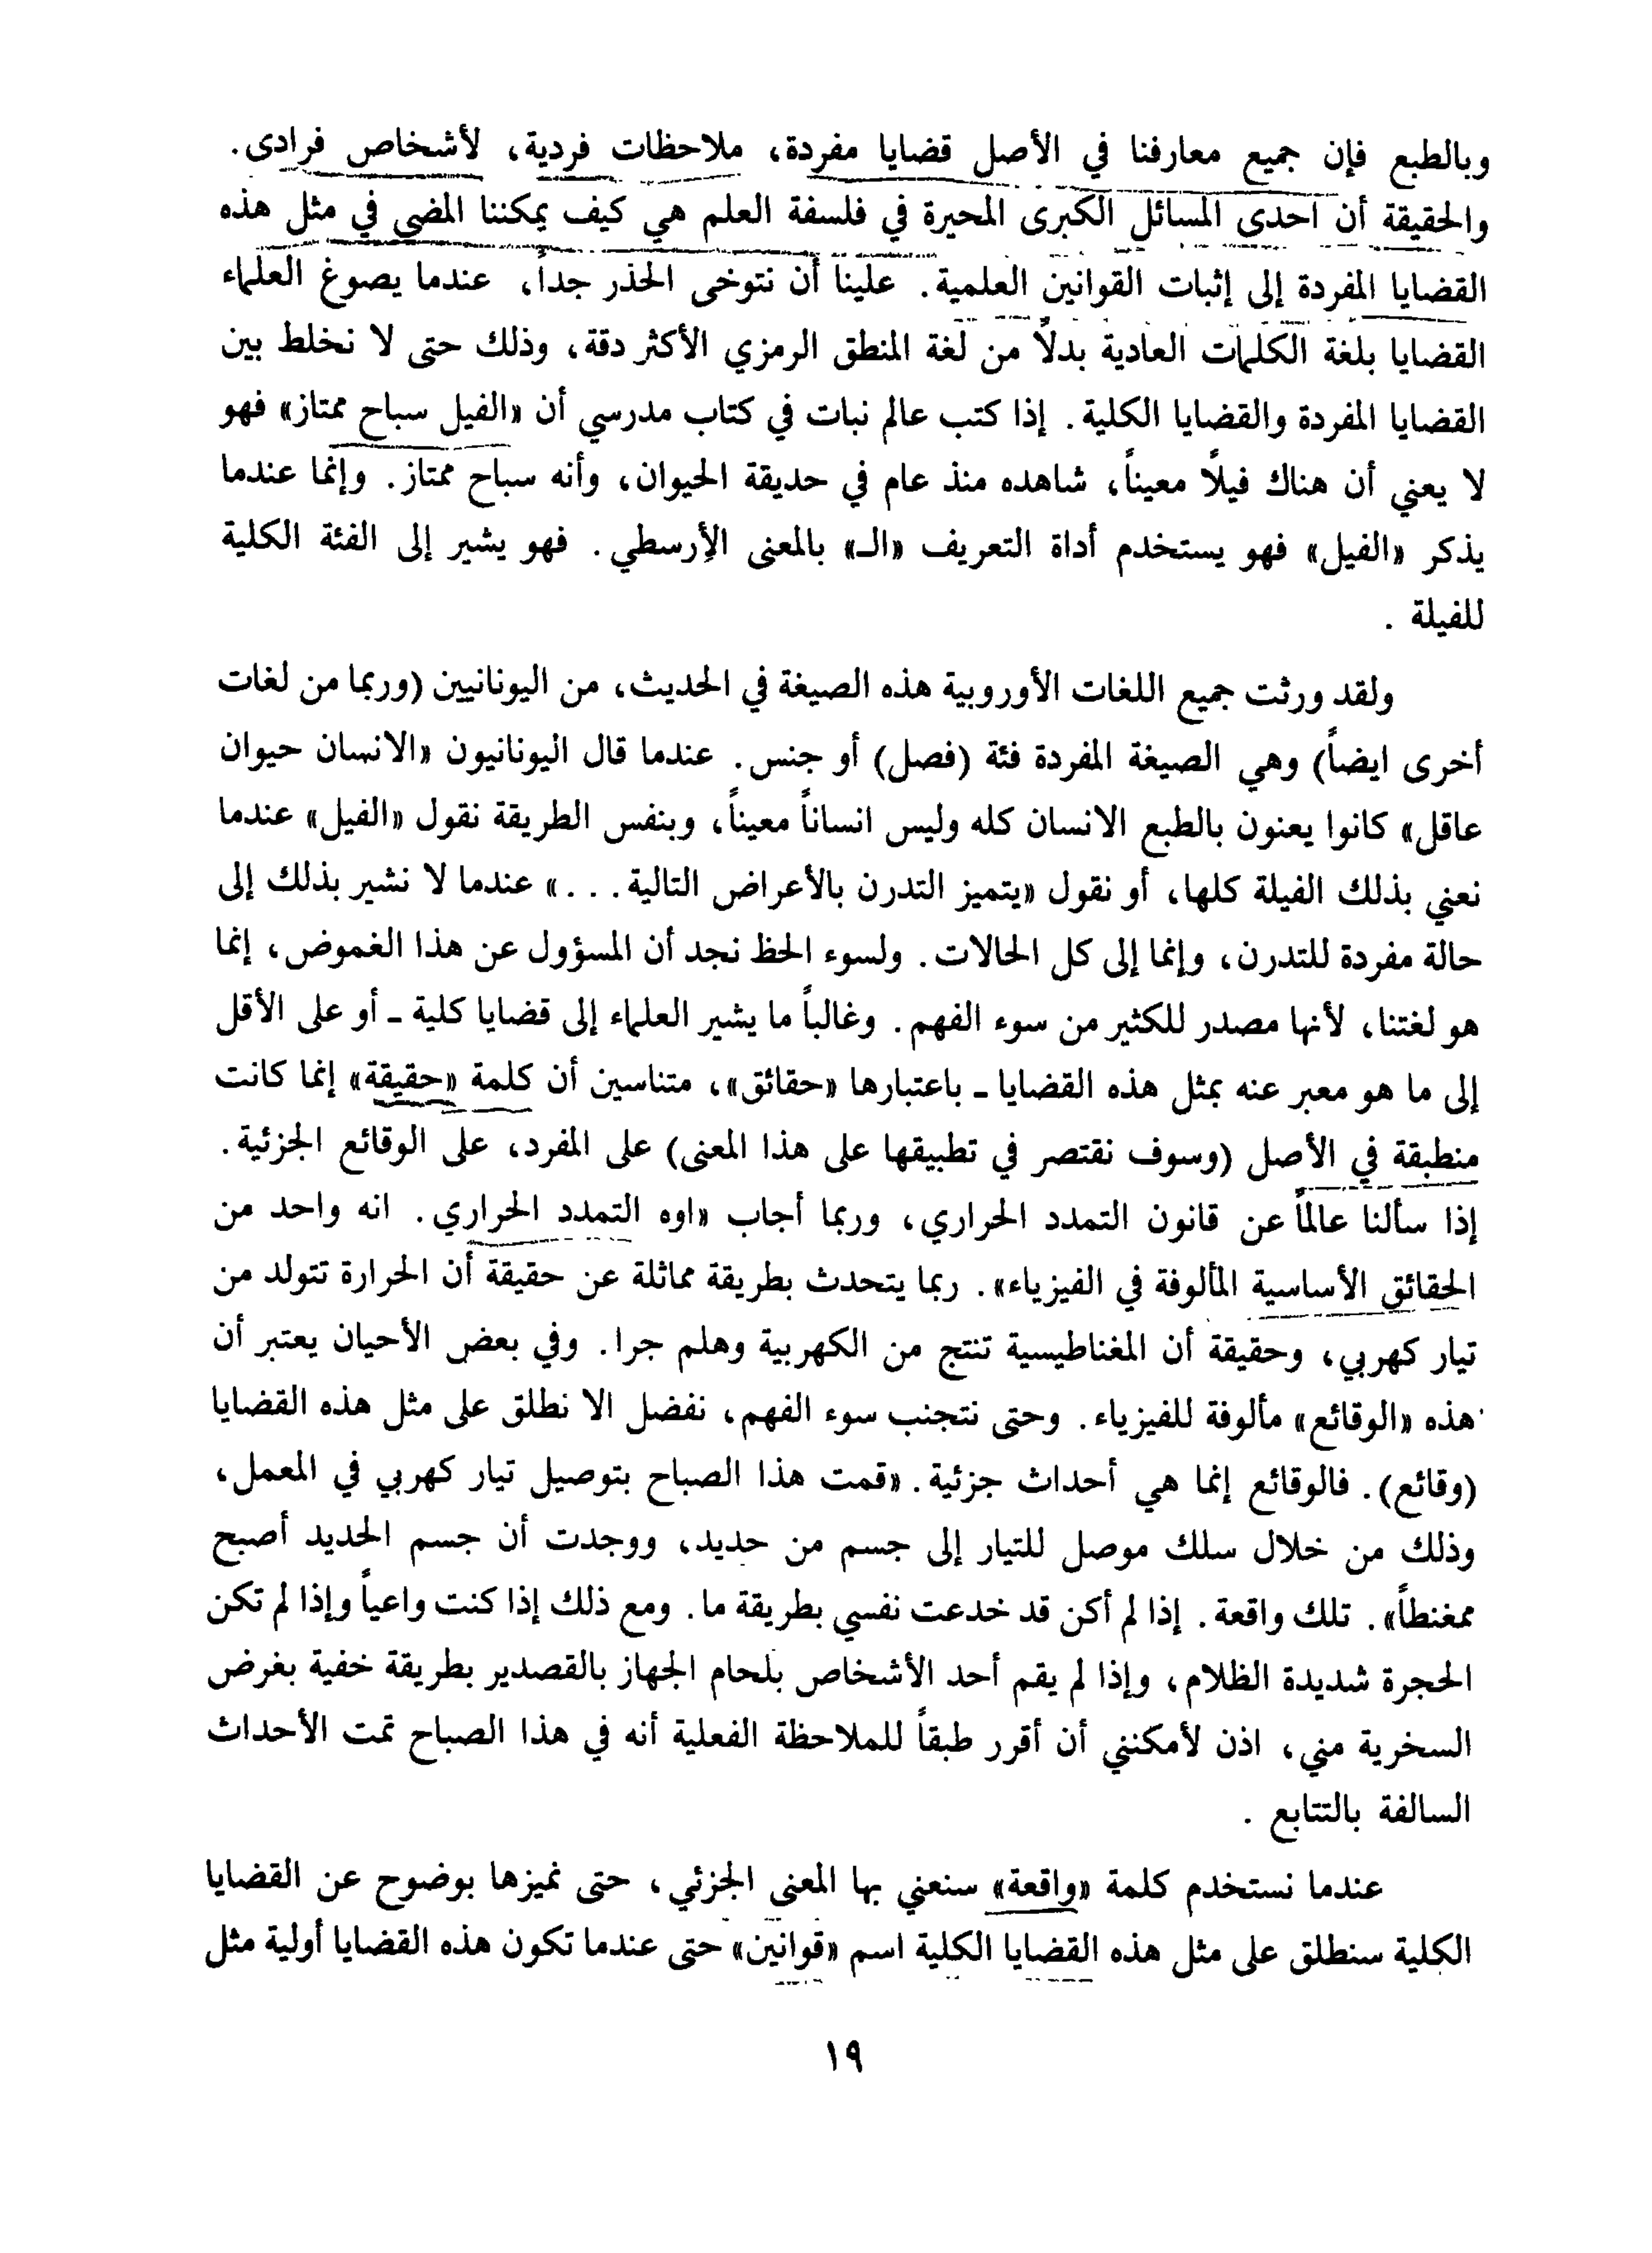 وبالطبع فإن جميع معارفنا في الأصل قضايا مفردة، ملاحظات فردية، لأشخاص فرادى.
والحقيقة أن احدى المسائل الكبرى المحيرة في فلسفة العلم هي كيف يمكننا المضي في مثل هذه
القضايا المفردة إلى إثبات القوانين العلمية. علينا أن نتوخى الحذر جداً، عندما يصوغ العلماء
القضايا بلغة الكلمات العادية بدلاً من لغة المنطق الرمزي الأكثر دقة، وذلك حتى لا نخلط بين
القضايا المفردة والقضايا الكلية. إذا كتب عالم نبات في كتاب مدرسي أن «الفيل سباح ممتاز» فهو
لا يعني أن هناك فيلاً معيناً، شاهده منذ عام في حديقة الحيوان، وأنه سباح ممتاز. وإنما عندما
يذكر «الفيل» فهو يستخدم أداة التعريف «الـ» بالمعنى الأرسطي. فهو يشير إلى الفئة الكلية
للفيلة.
ولقد ورثت جميع اللغات الأوروبية هذه الصيغة في الحديث، من اليونانيين (وربما من لغات
أخرى ايضاً) وهي الصيغة المفردة فئة (فصل) أو جنس. عندما قال اليونانيون «الانسان حيوان
عاقل» كانوا يعنون بالطبع الانسان كله وليس انساناً معيناً، وبنفس الطريقة نقول «الفيل» عندما
نعني بذلك الفيلة كلها، أو نقول «يتميز التدرن بالأعراض التالية...» عندما لا نشير بذلك إلى
حالة مفردة للتدرن، وإنما إلى كل الحالات. ولسوء الحظ نجد أن المسؤول عن هذا الغموض، إنما
هو لغتنا، لأنها مصدر للكثير من سوء الفهم. وغالباً ما يشير العلماء إلى قضايا كلية ـ أو على الأقل
إلى ما هو معبر عنه بمثل هذه القضايا ـ باعتبارها «حقائق»، متناسين أن كلمة «حقيقة» إنما كانت
منطبقة في الأصل (وسوف نقتصر في تطبيقها على هذا المعنى) على المفرد، على الوقائع الجزئية.
إذا سألنا عالماً عن قانون التمدد الحراري، وربما أجاب «اوه التمدد الحراري. انه واحد من
الحقائق الأساسية المألوفة في الفيزياء». ربما يتحدث بطريقة مماثلة عن حقيقة أن الحرارة تتولد من
تيار كهربي، وحقيقة أن المغناطيسية تنتج من الكهربية وهلم جرا. وفي بعض الأحيان يعتبر أن
هذه «الوقائع» مألوفة للفيزياء. وحتى نتجنب سوء الفهم، نفضل الا نطلق على مثل هذه القضايا
(وقائع). فالوقائع إنما هي أحداث جزئية. «قمت هذا الصباح بتوصيل تيار كهربي في المعمل،
وذلك من خلال سلك موصل للتيار إلى جسم من حديد، ووجدت أن جسم الحديد أصبح
ممغنطاً». تلك واقعة. إذا لم أكن قد خدعت نفسي بطريقة ما. ومع ذلك إذا كنت واعياً وإذا لم تكن
الحجرة شديدة الظلام، وإذا لم يقم أحد الأشخاص بلحام الجهاز بالقصدير بطريقة خفية بغرض
السخرية مني، اذن لأمكنني أن أقرر طبقاً للملاحظة الفعلية أنه في هذا الصباح تمت الأحداث
السالفة بالتتابع.
عندما نستخدم كلمة «واقعة» سنعني بها المعنى الجزئي، حتى نميزها بوضوح عن القضايا
الكلية سنطلق على مثل هذه القضايا الكلية اسم «قوانين» حتى عندما تكون هذه القضايا أولية مثل
١٩